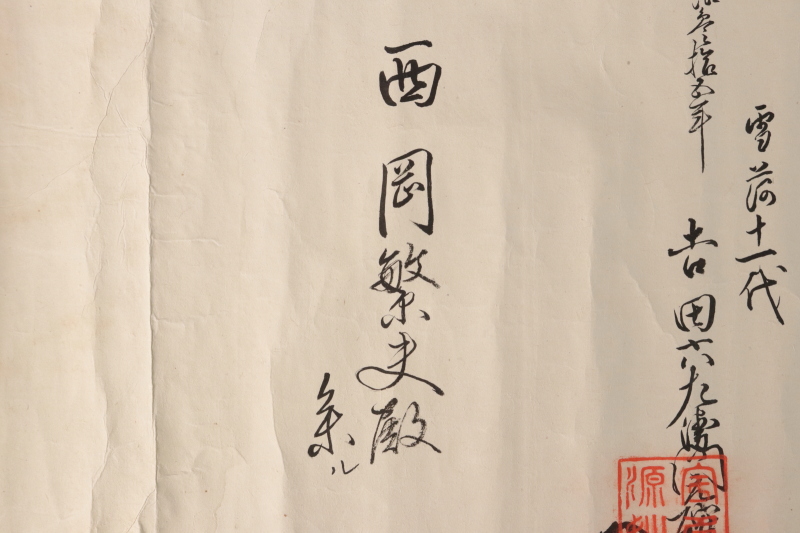 雪荷十一代
参拾五年
吉田六左衛門源
西岡繁夫殿
参ル